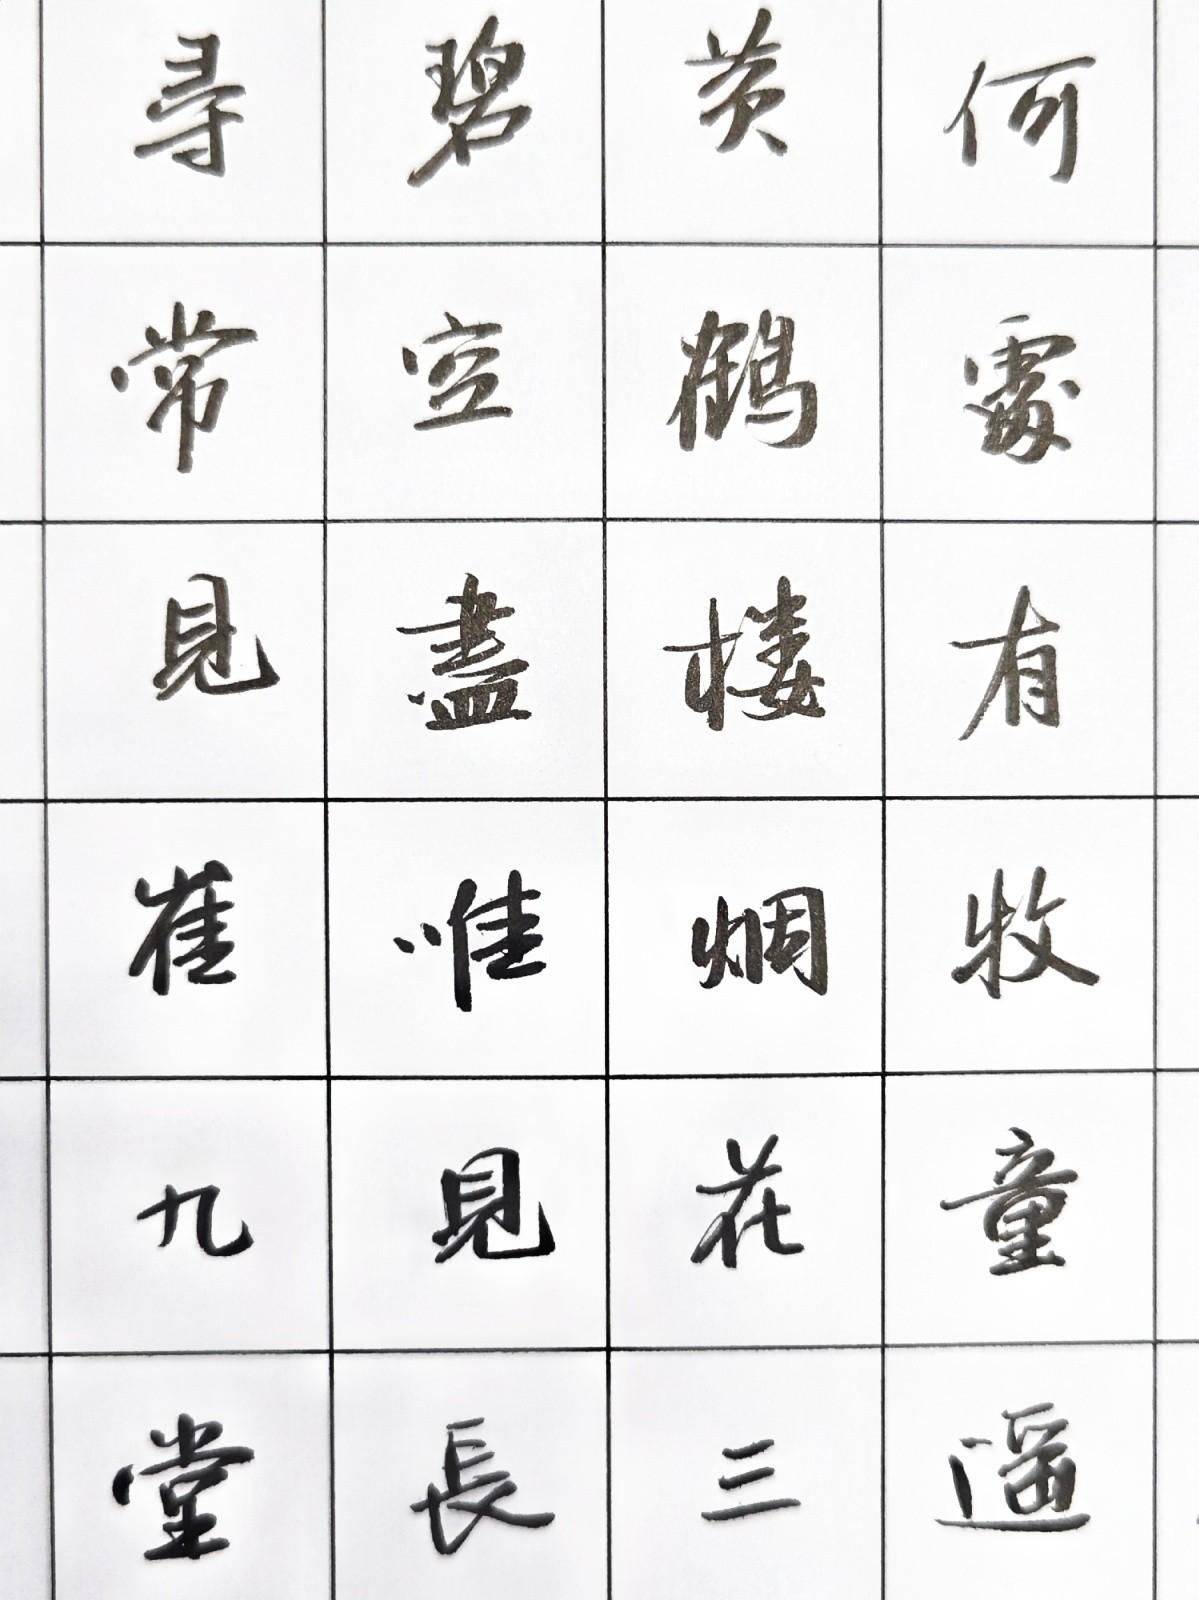 何處有牧童遥
黄鶴楼烟花三
碧空盡唯見長
尋常見崔九堂